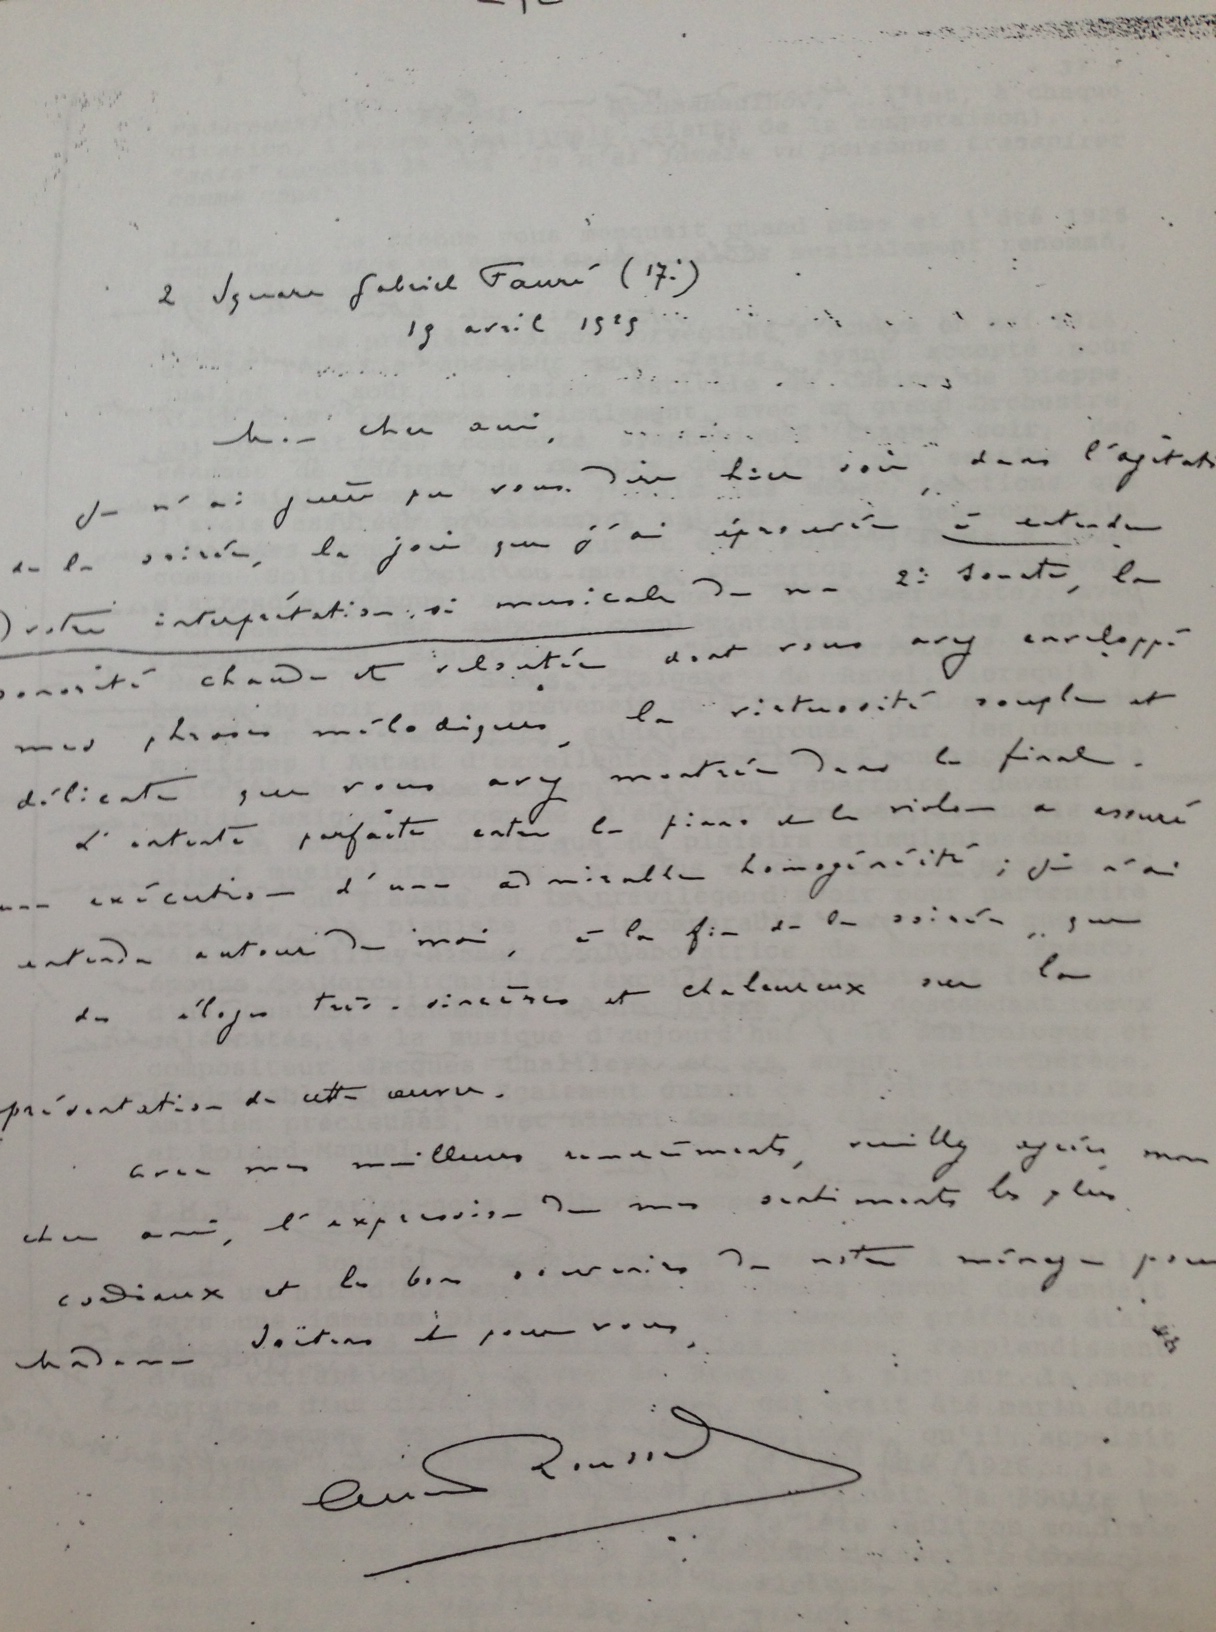 2 Square Gabriel Fauré (17e)
19 avril 1929
Mon cher ami,
Je n'ai guère pu vous dire hier soir, dans l'agitati
de la soirée, la joie que j'ai éprouvée à entendre
votre interprétation si musicale de ma 2e Sonate, la
sonorité chaude et veloutée dont vous avez enveloppé
mes phrases mélodiques, la virtuosité souple et
délicate que vous avez montrée dans le final.
L'entente parfaite entre le piano et le violon a assuré
une exécution d'une admirable homogénéité ; je n'ai
entendu autour de moi, à la fin de la soirée, que
des éloges très sincères et chaleureux sur la
présentation de cette œuvre.
Avec mes meilleurs remerciements, veuillez agréer, mon
cher ami, l'expression de mes sentiments les plus
cordiaux et les bons souvenirs de notre ménage pour
Madame et pour vous.
Albert Roussel